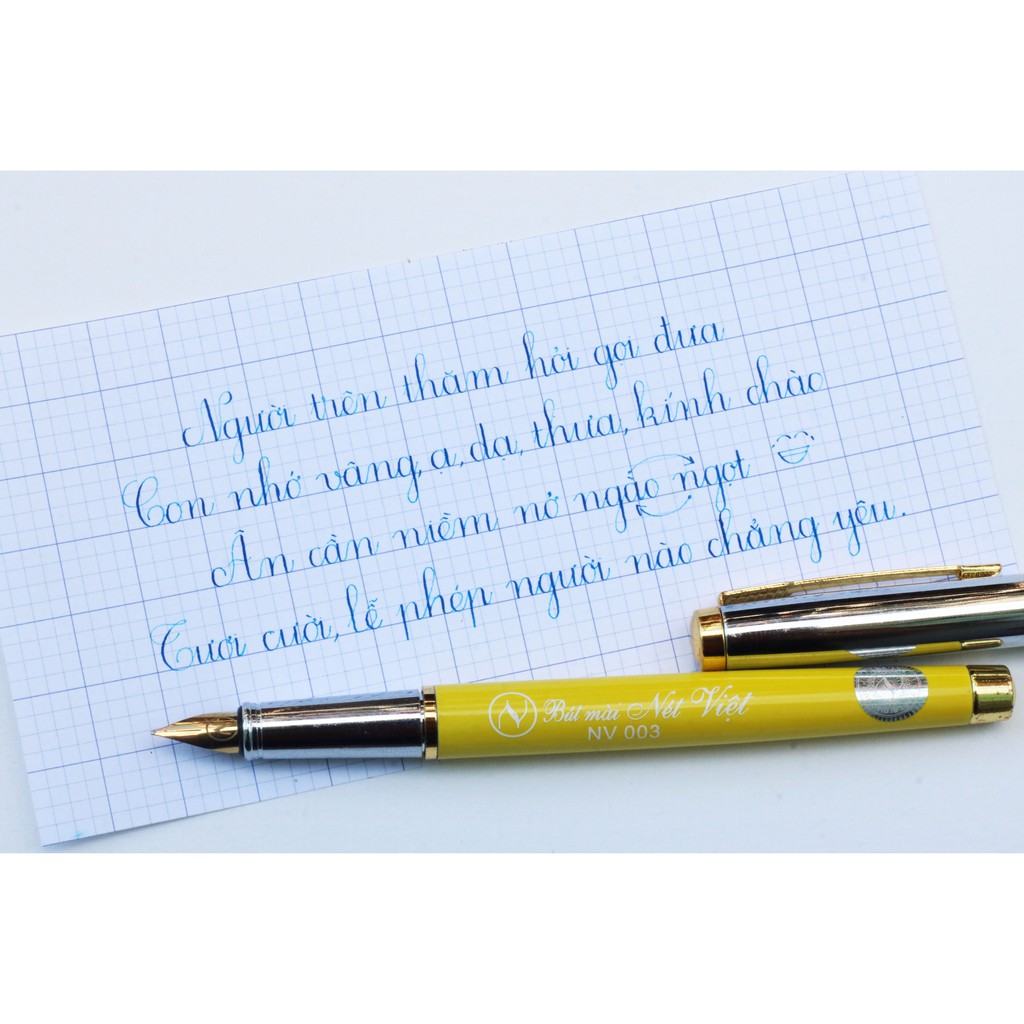 Người trên thăm hỏi gọi đưa
Con nhớ vâng, ạ, dạ, thưa, kính chào
Ân cần niềm nở ngào ngọt
Tươi cười, lễ phép người nào chẳng yêu.
Bút mài Nét Việt
NV 003